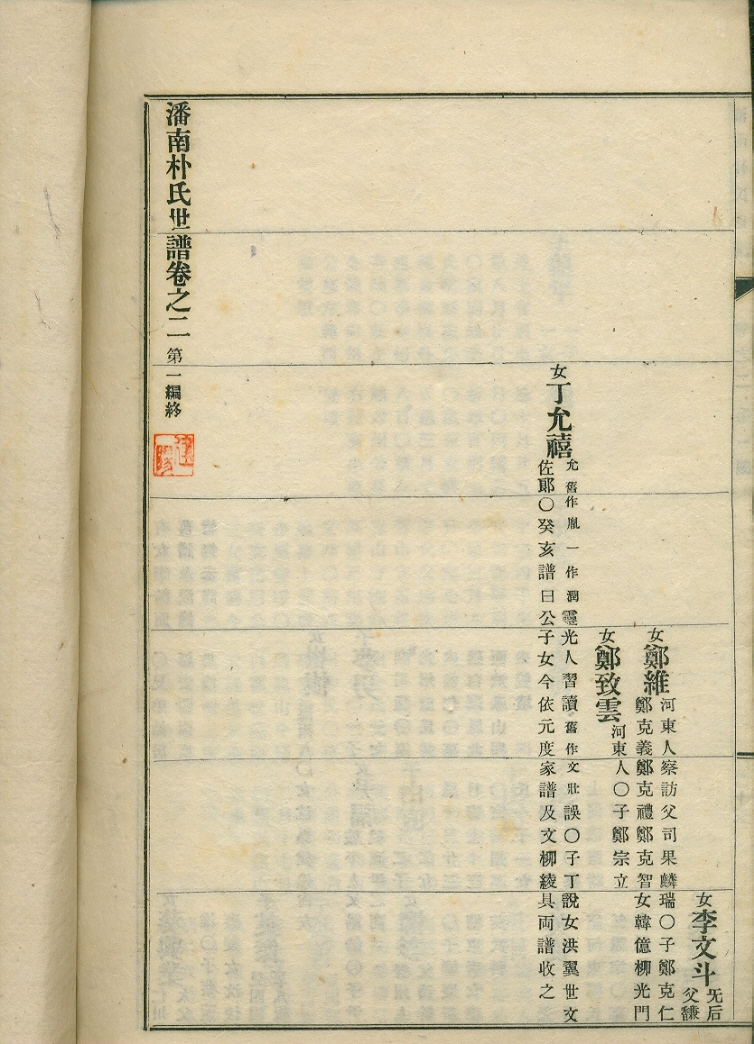 女李文斗
旡后
父馦
女鄭維
河東人察訪父司果麟瑞〇子鄭克仁
鄭克義鄭克禮鄭克智女韓億柳光門
女鄭致雲
河東人〇子鄭宗立
女丁允禧
允舊作胤一作潤靈光人習讀舊作文壯誤〇子丁說女洪翼世文
佐郞〇癸亥譜曰公子女今依元度家譜及文柳綾具両譜收之
潘南朴氏世譜卷之二
第一編終